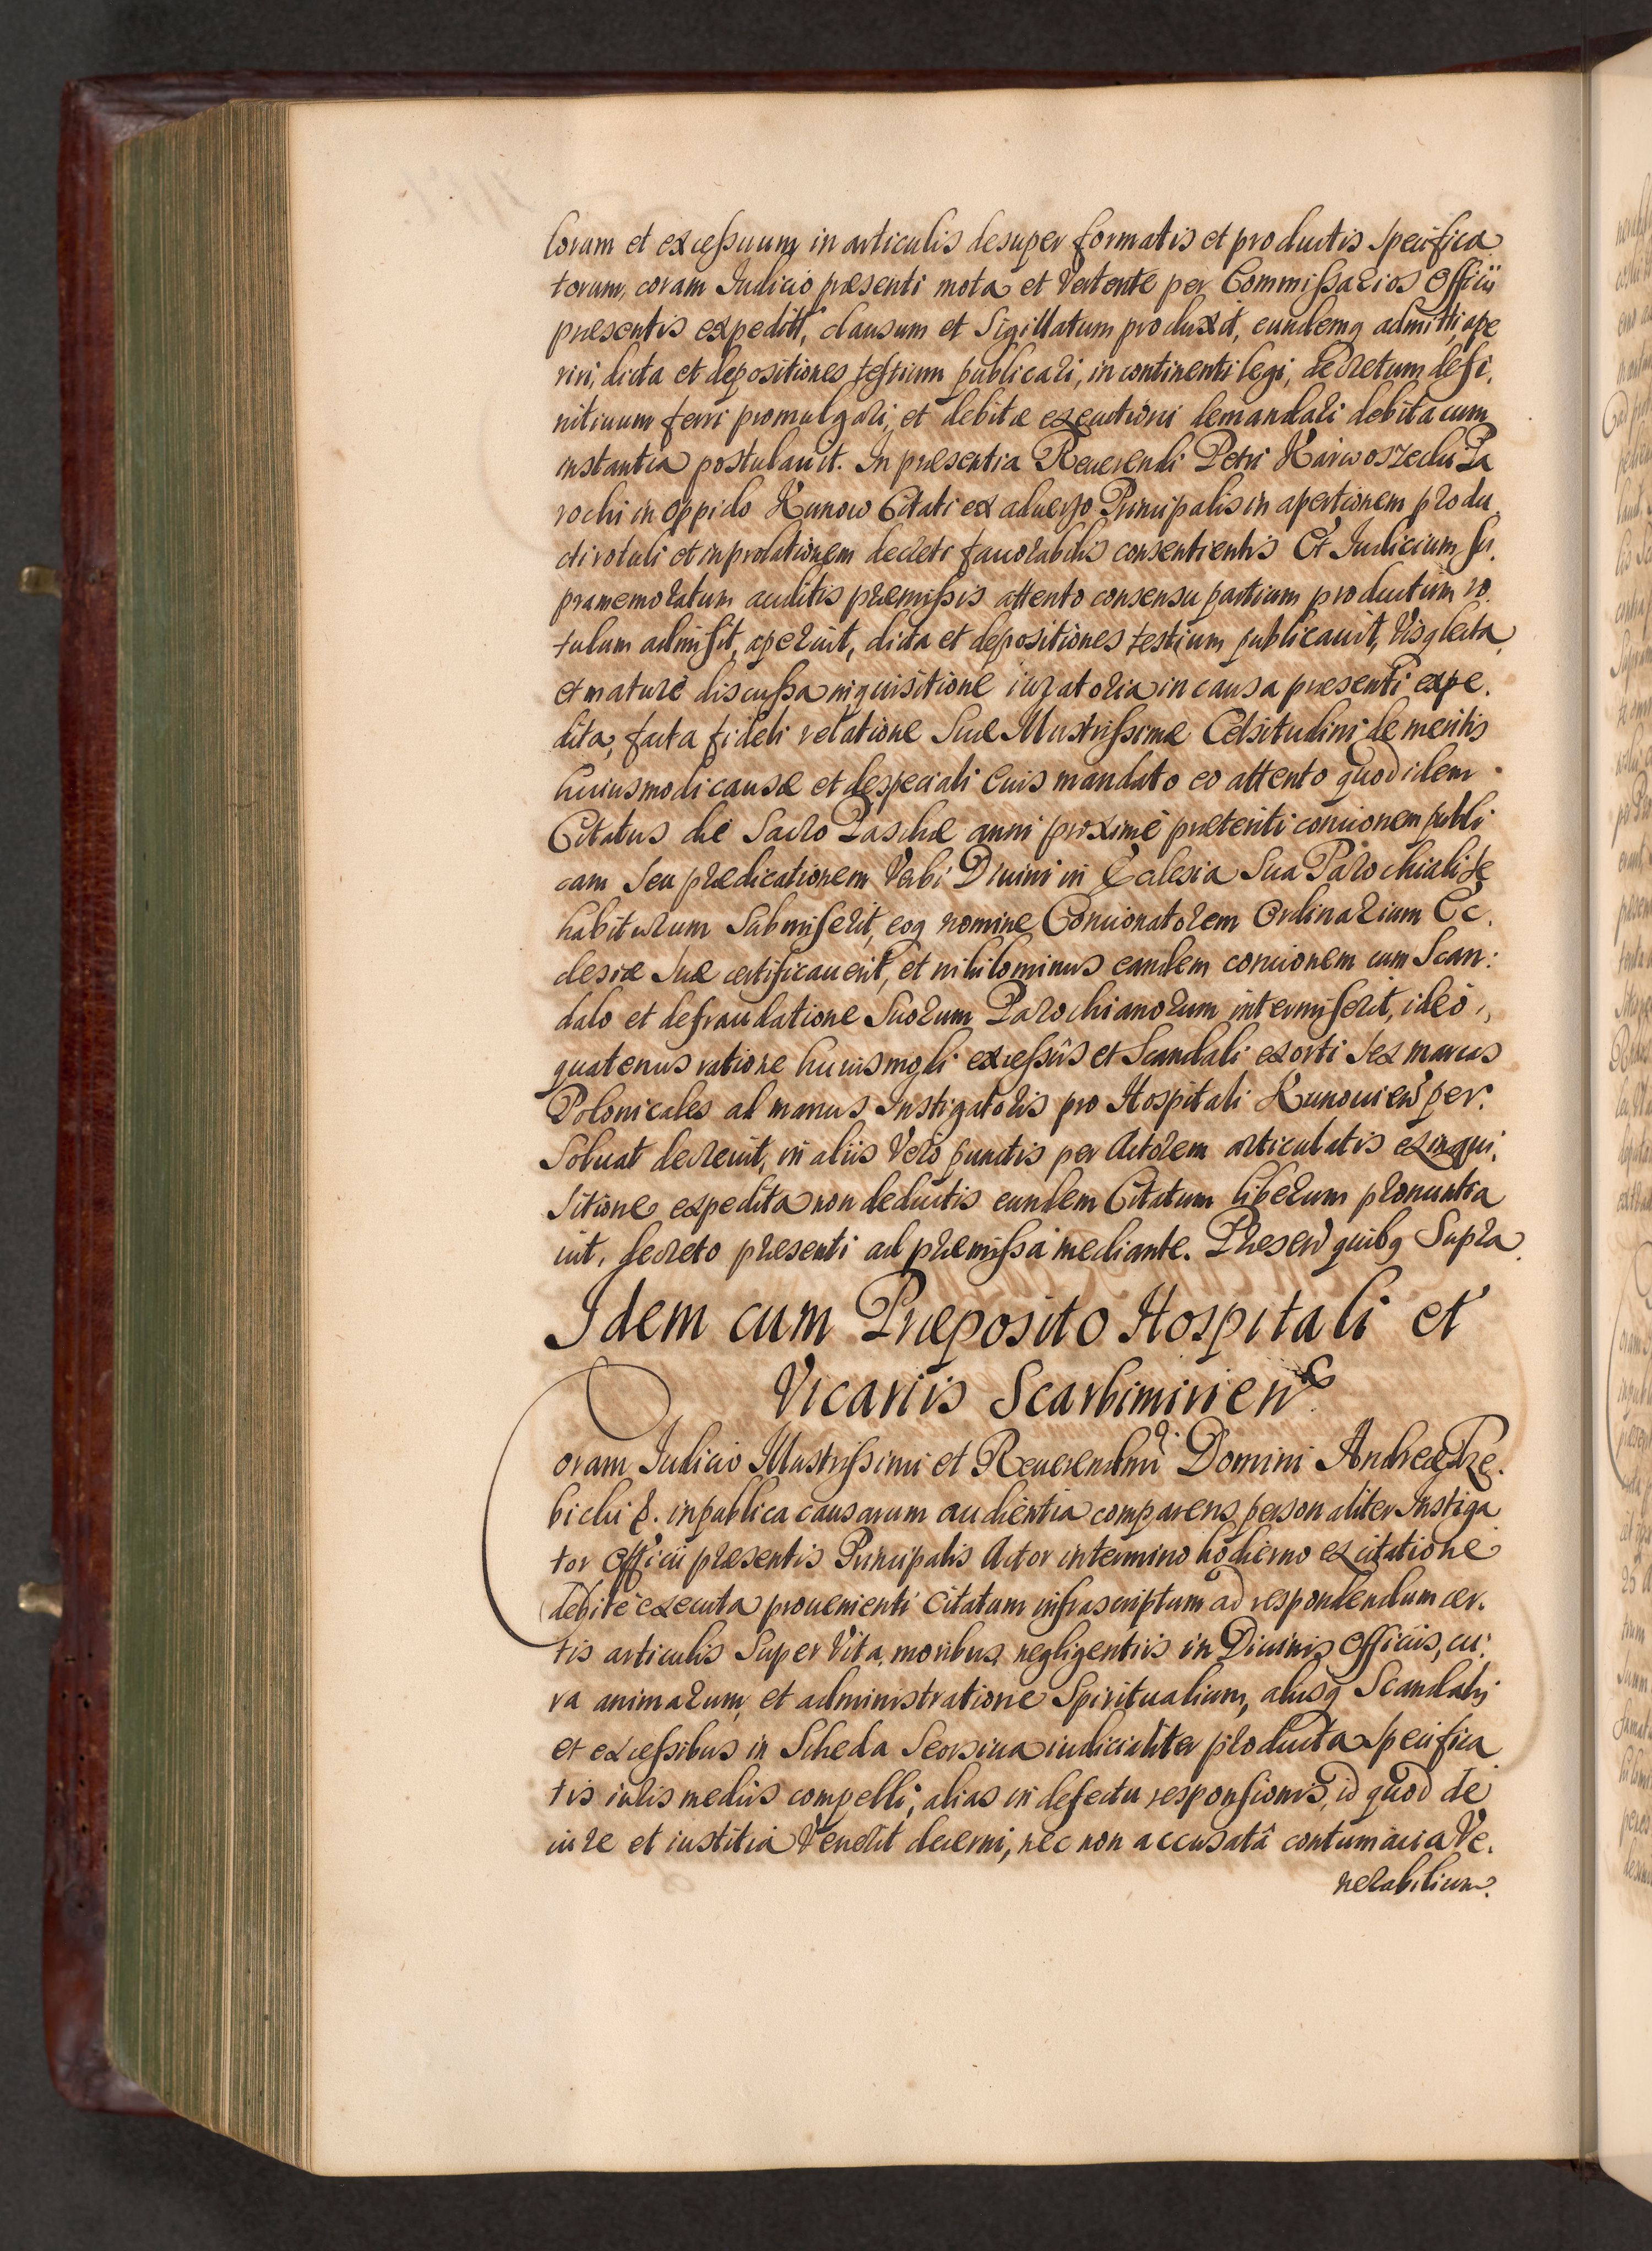 lorum et excessuum in articulis desuper formatis et productis Specifica
torum, coram Iudicio præsenti mota et Vertente per Commissarios Officij
præsentis expedit, clausum et Sigillatum produxit, eundemq admitti, ape
riri, dicta et depositiones testium publicari, in continenti legi, decretum defi,
nitiuum ferri promulgari, et debitæ executioni demandari debita cum
instantia postulauit. In præsentia Reuerendi Petri Karwoszecki Pa
rochi in oppido Kunow Citati ex aduerso Principalis in apertionem produ
cti rotuli et in prolationem decreti fauorabilis consentientis Et Iudicium su,
pramemoratum auditis præmissis attento consensu partium productum ro
tulum admisit, aperuit, dicta et depositiones testium publicauit, Visq lecta,
et maturè discussa inquisitione iuratoria in causa præsenti expe.
dita, facta fideli relatione Suæ Illustrissimæ Celsitudini de meritis
huiusmodi causæ et de speciali Eius mandato eo attento quod idem
Citatus die Sacro Paschæ anni proximè præteriti concionem publi
cam Seu prædicationem Verbi Diuini in Ecclesia Sua Parochiali Se
habiturum Submiserit, eoq nomine Concionatorem Ordinarium Ec.
clesiæ Suæ certificauerit, et nihilominus eandem concionem cum Scan:
dalo et defraudatione Suorum Parochianorum intermiserit, ideò,
quatenus ratione huiusmodi excessûs et Scandali exorti Sex marcas
Polonicales ad manus Instigatoris pro Hospitali Kunouien per.
Soluat decreuit, in aliis Verò punctis per Actorem articulatis ex inqui,
Sitione expedita non deductis eundem Citatum liberum pronuntia
uit, decreto præsenti ad præmissa mediante. Præsen quibq Supra
Idem cum Præposito Hospitali et
Vicariis Scarbimirien
Coram Iudicio Illustrissimi et Reuerendmi Domini Andreæ Trze.
bicki &. in publica causarum audientia comparens personaliter Instiga
tor Officii præsentis Principalis Actor in termino hodierno ex citatione
debitè executa prouenienti Citatum infrascriptum ad respondendum cer.
tis articulis Super Vita, moribus, negligentiis in Diuinis Officiis, cu,
ra animarum, et administratione Spiritualium, aliisq Scandalis
et excessibus in Scheda Seorsiua iudicialiter producta Specifica
tis iuris mediis compelli, alias in defectu responsionis, id quod de
iure et iustitia Venerit decerni, nec non accusatâ contumacia Ve.
nerabilium.